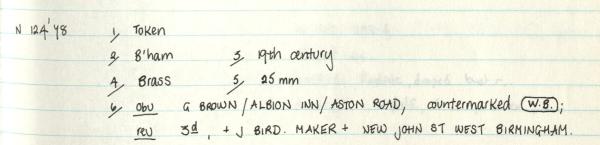 N 124'78 1/ Token
2/ B'ham 3/ 19th century
4/ Brass 5/ 25mm
6/ obv G BROWN / ALBION INN / ASTON ROAD, countermarked (W.B.);
rev 3d, + J BIRD. MAKER + NEW JOHN ST WEST BIRMINGHAM.